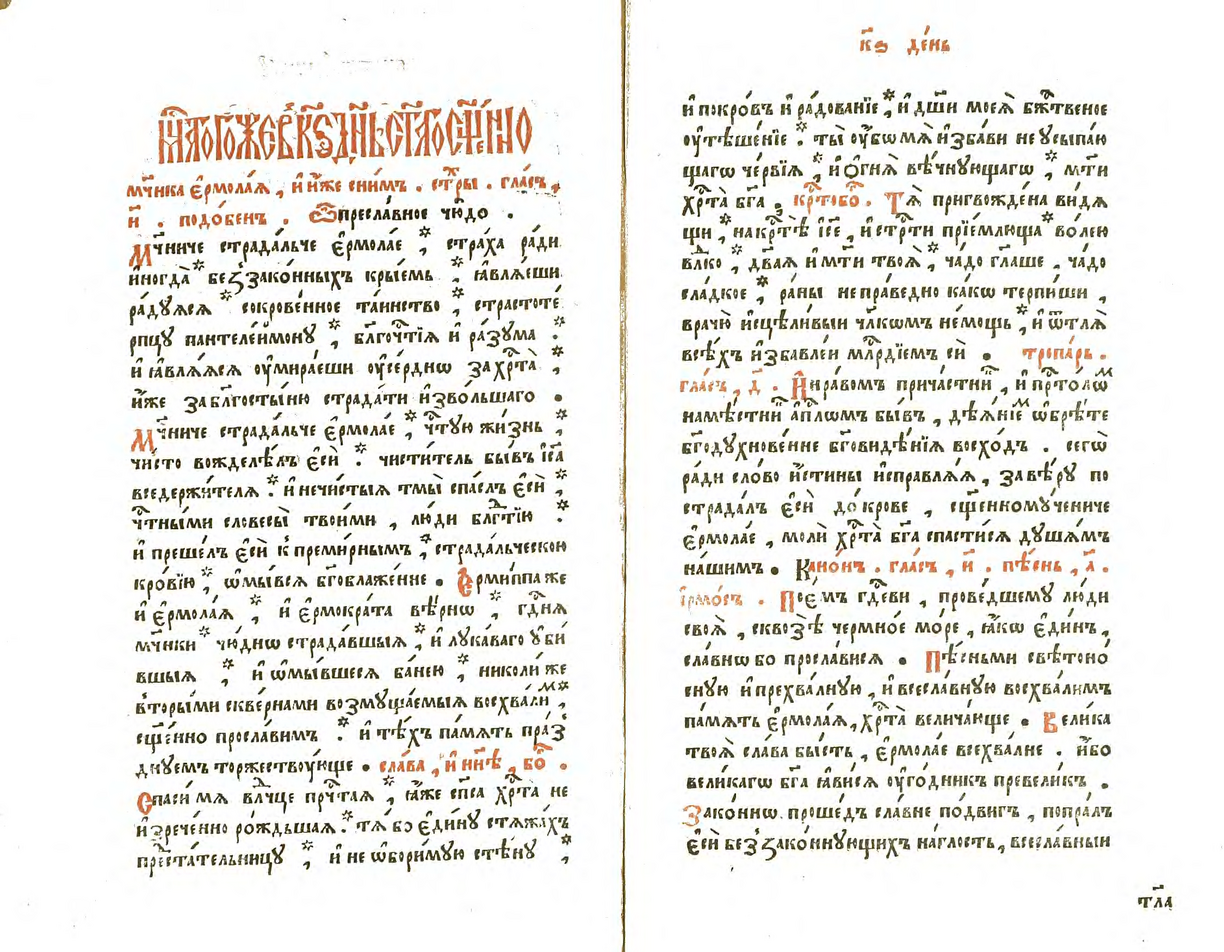 мч҃ника є҆рмола́ѧ , и҆ и҆́же сни́мъ . стр҃ы . гла́съ ,
и҃ . подо́бенъ . Ѽ пресла́вное чю́до .
Мч҃ниче страда́льче є҆рмола́е ,* стра́ха ра́ди
иногда̀* беꙁꙁако́нныхъ кры́емь ,* ꙗ҆влѧ́еши
ра́дуѧсѧ* сокрове́нное та́инство ,* страстоте́
рпцу пантелеи́мону ,* блг҃оч҇тїѧ и҆ ра́ꙁума .*
и҆ ꙗ҆влѧ́ѧсѧ оу҆мира́еши оу҆се́рднѡ ꙁа хр҇та̀ ,*
и҆́же ꙁа бл҃госты́ню страда́ти и҆ꙁво́льшаго .
Мч҃ниче страда́льче є҆рмола́е ,* ч҇тꙋю жи́ꙁнь ,*
чи́сто вожделѣ́лъ є҆сѝ .* чисти́тель бы́въ і҆с҃а
вседержи́телѧ .* и҆ нечи́стыѧ тмы̀ спа́слъ є҆сѝ ,*
ч҇тными словесы̀ твои́ми , лю́ди блг҇тїю .*
и҆ преше́лъ є҆сѝ к҆ преми́рнымъ ,* страда́льческою
кро́вїю ,* ѡ҆мы́всѧ бг҃облаже́нне . Є҆рми́ппа же
и҆ є҆рмола́ѧ ,* и҆ є҆рмокра́та вѣ́рнѡ ,* гд҇нѧ
мч҃ники* чю́днѡ страда́вшыѧ ,* и҆ лука́ваго уби́
вшыѧ ,* и҆ ѡ҆мы́вшесѧ ба́нею ,* николи́же
вторы́ми скве́рнами воꙁмуща́емыѧ восхва́лим ,*
сщ҃е́нно просла́вимъ .* и҆ тѣ́хъ па́мѧть пра́ꙁ
днуемъ торжеству́юще . сла́ва , и҆ нн҃ѣ , бо҇ .
Спаси́ мѧ влⷣчце прч҇таѧ ,* ꙗ҆́же сп҃са хр҇та̀ не
иꙁрече́нно ро́ждьшаѧ .* тѧ̀ бо є҆ди́ну стѧжа́хъ
предста́тельницу ,* и҆ не ѡ҆бори́мую стѣ́ну ,*
кѕ҃ де́нь
и҆ покро́въ и҆ ра́дованїе ,* и҆ дш҃и моеѧ̀ бж҇твеное
оу҆тѣше́нїе .* ты̀ оу҆́бо мѧ̀ и҆ꙁба́ви не усыпа́ю
щагѡ че́рвїѧ ,* и҆ ѻ҆гнѧ̀ вѣ́чнующагѡ ,* мт҃и
хр҇та̀ бг҃а . кр҇тобо҇ . Тѧ̀ пригвожде́на ви́дѧ
щи ,* на кр҇тѣ̀ і҆с҃е , и҆ стр҇ти прїе́млюща* во́лею
влⷣко , дв҃аѧ и҆ мт҃и твоѧ̀ ,* ча́до гла́ше , ча́до
сла́дкое ,* ра́ны непра́ведно ка́кѡ те́рпиши ,
врачю̀ и҆сцѣли́выи чл҃кѡмъ не́мощь ,* и҆ ѿ тлѧ̀
всѣ́хъ и҆ꙁба́влеи млⷭ҇рдїемъ сѝ . тропа́рь .
гла́съ , д҃ . И҆ нра́вомъ прича́стни҇ , и҆ пр҇то́лѡм
намѣ́стни҇ а҆пⷭ҇лѡмъ бы́въ , дѣѧ́нїем ѡ҆брѣ́те
бг҃одухнове́нне бг҃овидѣ́нїѧ восхо́дъ . сегѡ̀
ра́ди сло́во и҆́стины и҆справлѧ́ѧ , ꙁа вѣ́ру по
страда́лъ є҆сѝ до́ крове , сщ҃енному́чениче
є҆рмола́е , молѝ хр҇та̀ бг҃а спасти́сѧ душѧ́мъ
на́шимъ . Кано́н . гла́съ , и҃ . пѣ́снь , а҃ .
і҆рмо́съ . Пое́мъ гдⷭ҇еви , прове́дшему лю́ди
своѧ̀ , сквоꙁѣ̀ чермно́е мо́ре , ꙗ҆́кѡ є҆ди́нъ ,
сла́внѡ бо просла́висѧ . Пѣ́сньми свѣтоно́
сную и҆ прехва́лную , и҆ всесла́вную восхва́лимъ
па́мѧть є҆рмола́ѧ, хр҇та̀ велича́юще . Вели́ка
твоѧ̀ сла́ва бы́сть , є҆рмола́е всехва́лне . и҆́бо
вели́кагѡ бг҃а ꙗ҆ви́сѧ оу҆го́дникъ превели́къ .
Ꙁако́ннѡ . проше́дъ сла́вне по́двигъ , попра́лъ
є҆сѝ беꙁꙁако́ннующихъ на́глость, всесла́вныи
тл҃а